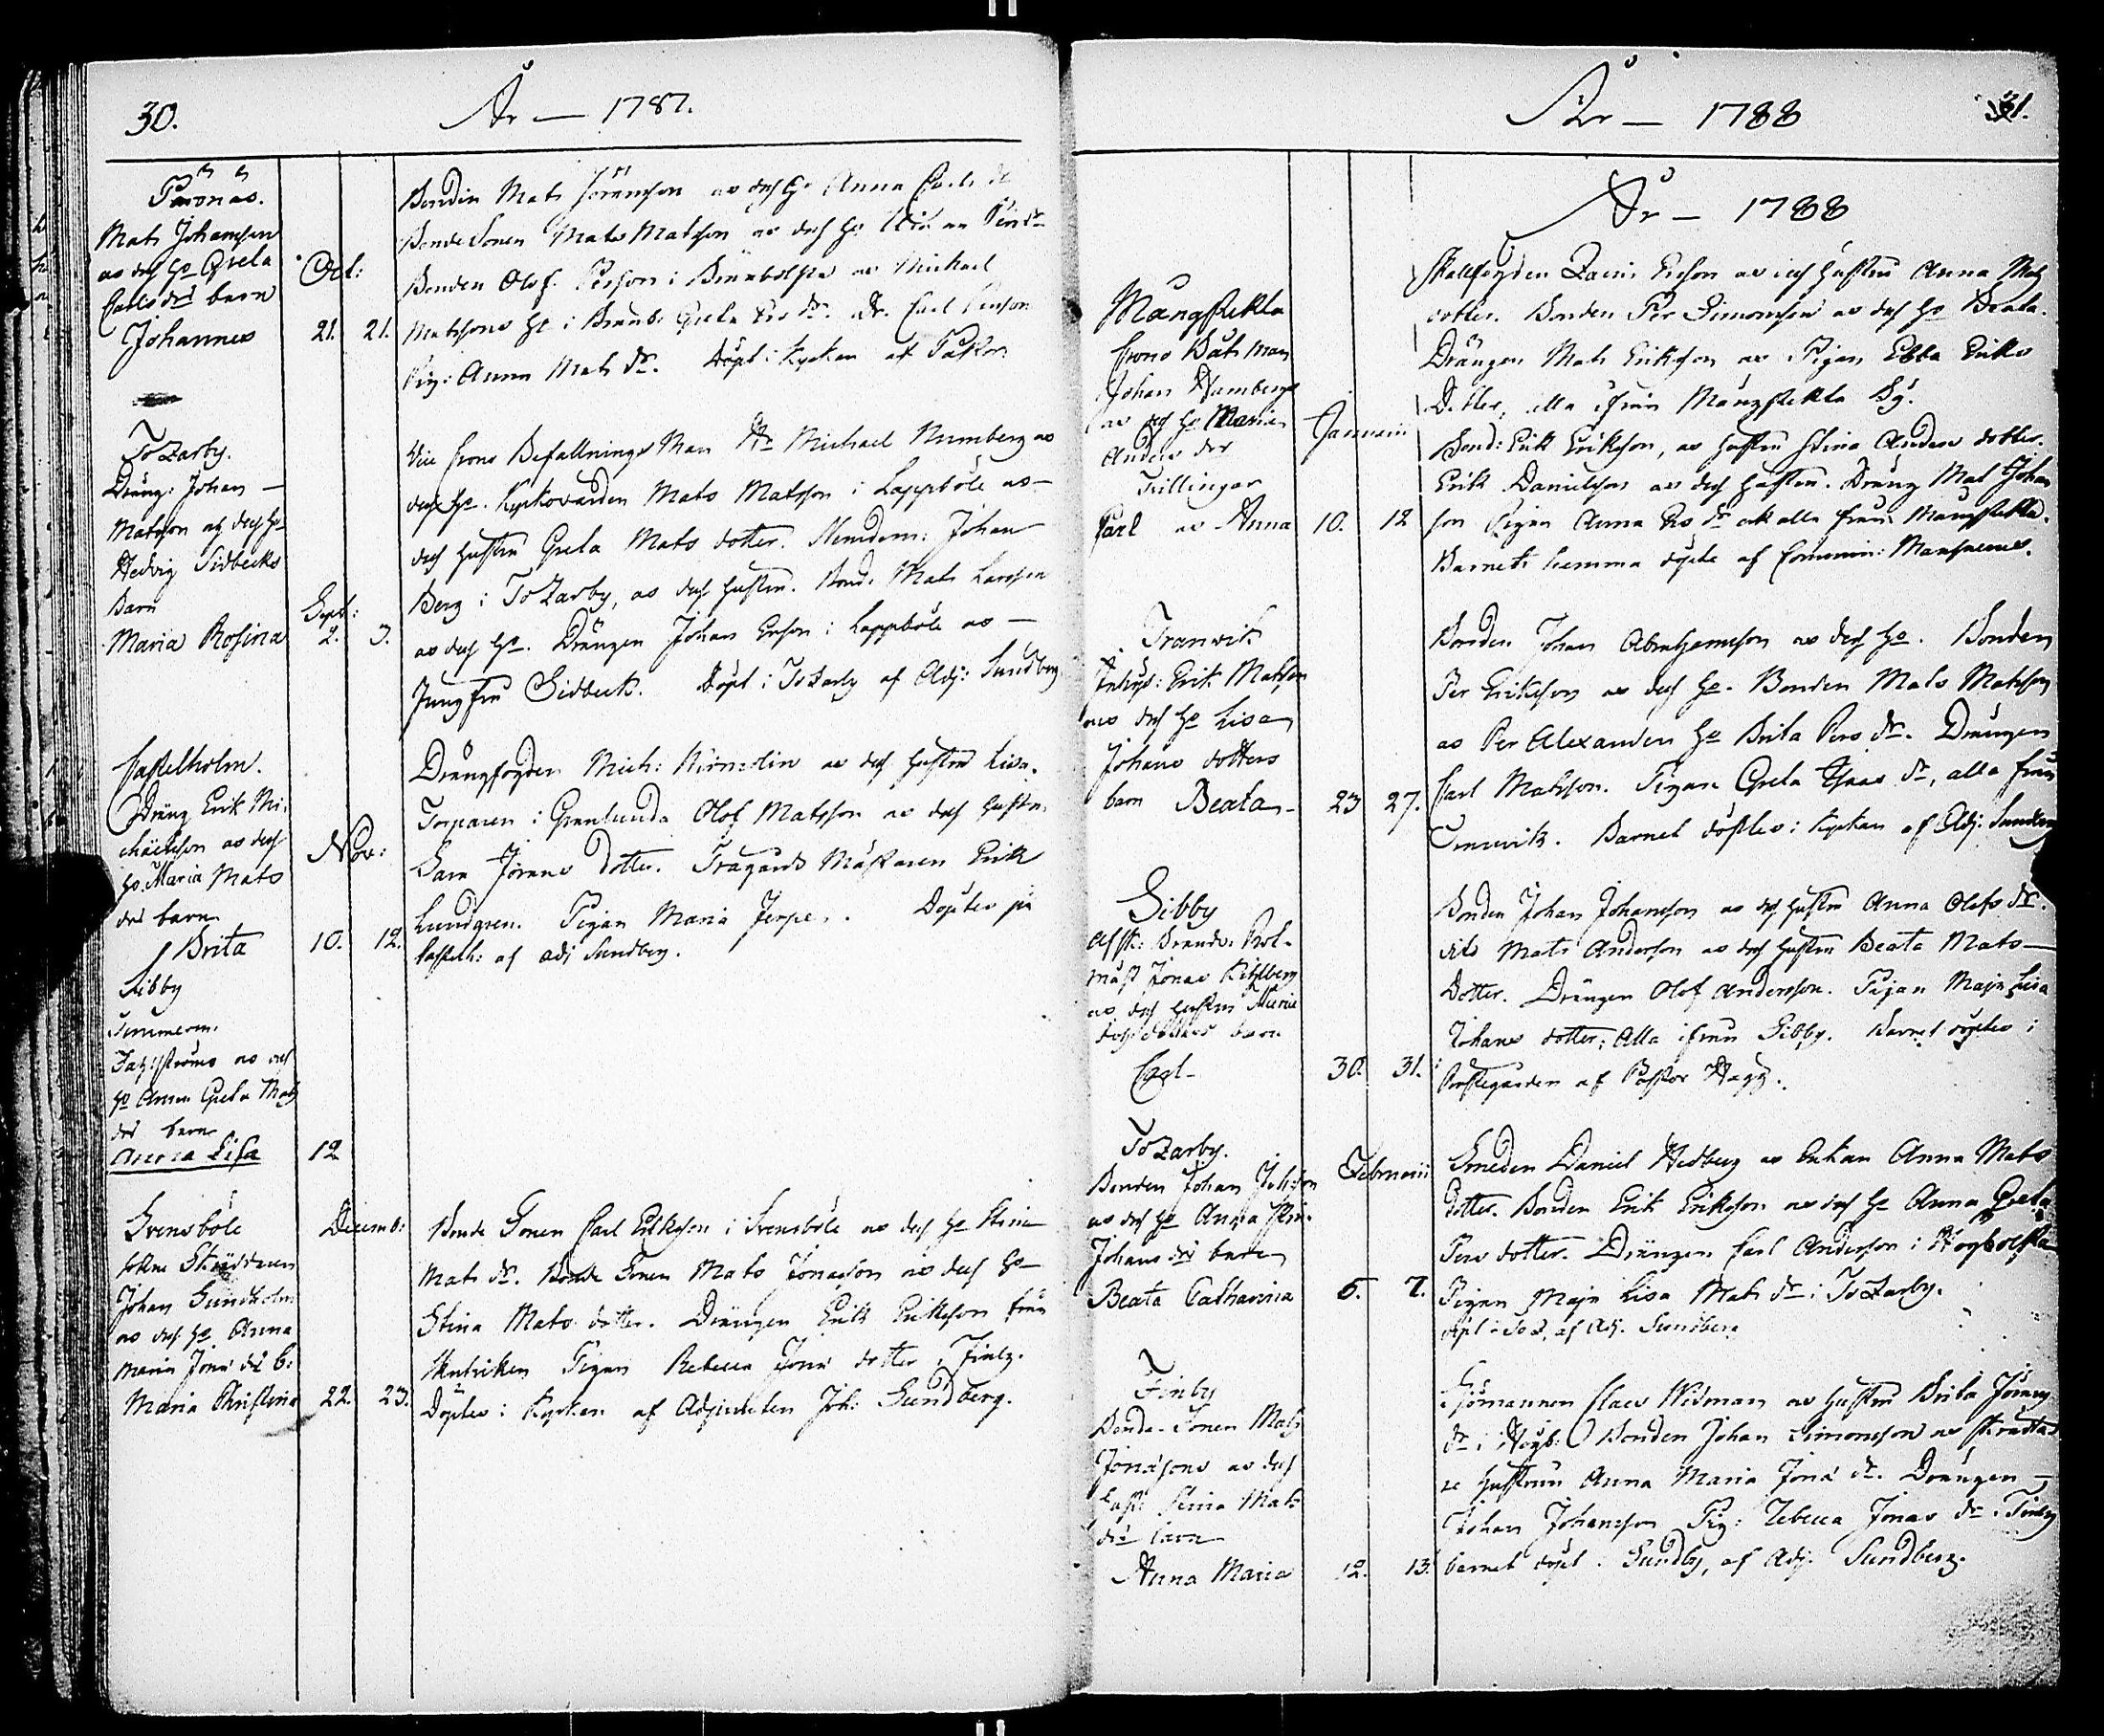 30.
År — 1787.
Mats Johansson
as dess ho Greta
Carls drs barn
Johannes
Oct:
21. 21.
Bonden Mats Jöransson as dess ho Anna Carls
BondeSonen Mats Matsson as dess ho
Bonden Olof Persson i as Michael
Matssons ho i Greta Pers dr. Dr. Carl
Pig: Anna Mats dr. Döpt i Kyrkan af Pastor
Tosarby.
Dräng: Johan —
Matsson as dess ho
Hedvig Sidbecks
Barn
Maria Rosina
Sept:
2. 3.
Vice Crono Befallnings Man Hr Michael Numberg as
dess ho. Kyrkovärden Mats Matsson i Lappböle as —
dess hustru Greta Mats dotter. Nemdem: Johan
Berg i Tosarby, as dess hustru. Bond. Mats Larsson
as dess ho. Drängen Johan Ersson i Lappböle as —
Jungfru Sidbeck. Döpt i Tosarby af Adj: Sundberg
Castelholm.
Dräng Erik Mi-
chäelsson as dess
ho. Maria Mats
drs barn
Brita
Nov:
10. 12.
Drängfogden Mich: as dess hustru Lisa.
Torparen i Grenlunda Olof Matsson as dess hustru
Sara Jörans dotter. Trägårds Mästaren Erik
Lundgren. Pigan Maria Jerpe. Döptes på
Castelh: af adj Sundberg.
Sibby
Timmerm.
as dess
ho Anna Greta Mats
drs barn
Anna Lisa
12
Svensböle
sokne Skräddaren
Johan Sundholm
as dess ho Anna
Maria Jona drs b:
Maria Christina
Decemb:
22. 23.
Bonde Sonen Carl Eriksson i Svensböle as dess ho Stina
Mats dr. Bonde Sonen Mats Jonasson as dess ho
Stina Mats dotter. Drängen Erik Eriksson från
Pigan Rebecca Jona dotter i Finby.
Döptes i Kyrkan af Adjuncten Joh: Sundberg.
År — 1788
31.
År — 1788
Mångstekta
Crono Båtsman
Johan Hamberg
as dess ho Maria
Anders drs
Trillingar
Carl as Anna
Januarii
10. 12
Ersson as dess hustru Anna Mats
dotter. Bonden Per Simonsson as dess ho Beata.
Drängen Mats Eriksson as Pigan Ebba Eriks
Dotter, alla ifrån Mångstekta By.
Bond: Erik Eriksson, as hustru Stina Anders dotter.
Erik Danielsson as dess hustru. Dräng Mat Johan
son Pigan Anna Pers dr ock alla från Mångstekta.
Barnets hemma döpte af Commin:
Tranvik
Inhys: Erik Matsson
as dess ho Lisa
Johans dotters
barn Beata
23 27.
Bonden Johan Abrahamsson as dess ho. Bonden
Per Eriksson as dess ho. Bonden Mats Matsson
as Per Alexanders ho Brita Pers dr. Drängen
Carl Matsson. Pigan Greta Isaas dr, alla från
Tranvik. Barnet döptes i Kyrkan af Adj. Sundberg
Sibby
Jonas
as dess hustru Maria
dotters barn
Carl
30. 31.
Bonden Johan Johansson as dess hustru Anna Olofs dr.
Mats Andersson as dess hustru Beata Mats —
Dotter. Drängen Olof Andersson. Pigan Maja Lisa
Johans dotter; Alla ifrån Sibby. Barnet döptes i
Prestegården af Pastor Hägg.
Tosarby.
Bonden Johan Johsson
as dess ho Anna
Johans drs barn
Beata Catharina
Februarii
6. 7.
Smeden Daniel Hedberg as Enkan Anna Mats
dotter. Bonden Erik Eriksson as dess ho Anna Greta
Pers dotter. Drängen Carl Andersson i Högbolsta
Pigan Maja Lisa Mats dr i Tosarby.
döpt i Tos. af Adj. Sundberg
Finby
Bonde-Sonen Mats
Jonassons as dess
hust: Stina Mats
drs barn
Anna Maria
12. 13.
Sjömannen Claes Widman as hustru Brita Jörans
dr i Högb: Bonden Johan Simonsson as Skrädda
re hustrun Anna Maria Jona dr. Drängen —
Johan Johansson Pig: Rebecca Jonas dr i Finby
barnet döpt i Sundby, af Adj. Sundberg.